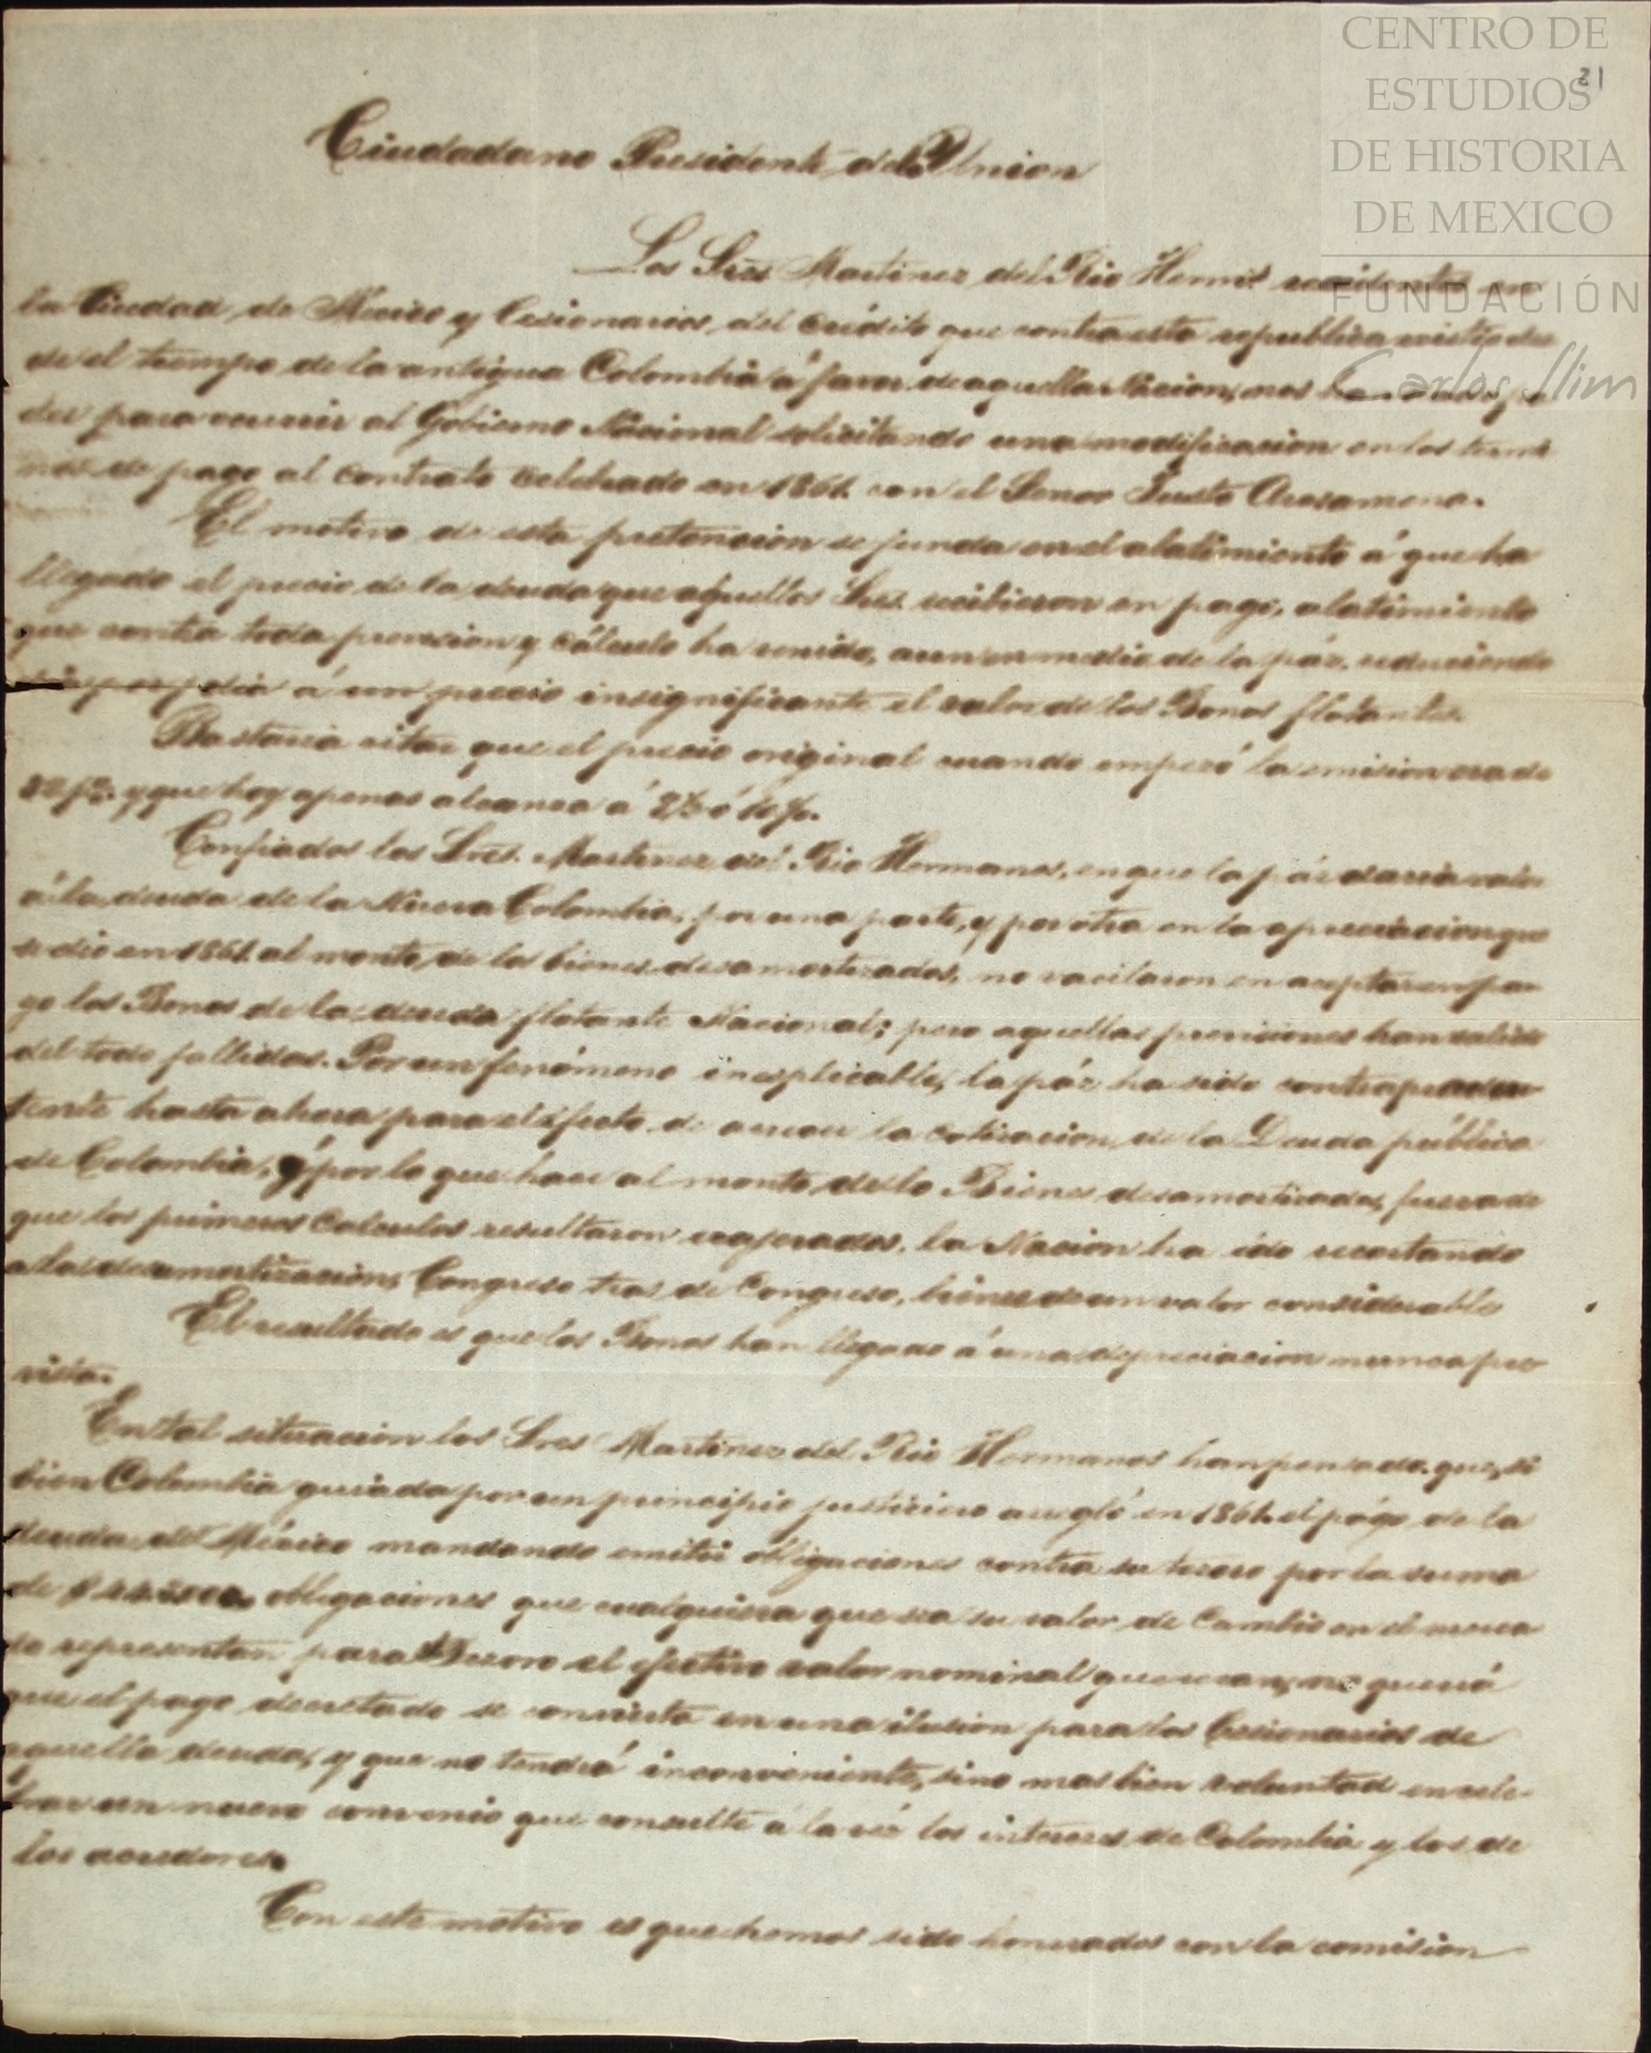 CENTRO DE
ESTUDIOS
DE HISTORIA
DE MEXICO
FUNDACIÓN
Carlos Slim
31
Ciudadano Presidente de la Union
Los Sres Martinez del Rio Herms residentes en
la Ciudad de Mexico y Cesionarios del crédito que contra esta republica existia des
de el tiempo de la antigua Colombia á favor de aquella Nacion, nos han dado po
der para ocurrir al Gobierno Nacional solicitando una modificacion en los termi
nos de pago al contrato celebrado en 1861 con el Senor Justo Arosamena.
El motivo de esta pretencion se funda en el abatimiento á que ha
llegado el precio de la deuda que aquellos Sres. recibieron en pago, abatimiento
que contra toda prevision y cálculo ha venido, aun en medio de la páz, reduciendo
dia por dia á un precio insignificante el valor de los Bonos flotantes.
Bastaria citar que el precio original cuando empezó la emision era de
y que hoy apenas alcanza á
Confiados los Sres. Martinez del Rio Hermanos, en que la páz daria valor
á la deuda de la Nueva Colombia, por una parte, y por otra en la apreciacion que
se dio en 1861 al monto de los bienes desamortizados, no vacilaron en aceptar en pa
go los Bonos de la deuda flotante Nacional; pero aquellas previsiones han salido
del todo fallidas. Por un fenómeno inesplicable, la páz ha sido contraproducen
tente hasta ahora para el efecto de la cotizacion de la Deuda pública
de Colombia, y por lo que hace al monto de lo Bienes desamortizados, fuera de
que los primeros Calculos resultaron exajerados, la Nacion ha ido recortando
a la desamortizacion, Congreso tras de Congreso, bienes de un valor considerable
El resultado es que los Bonos han llegado á una depreciacion nunca pre
vista.
En tal situacion los Sres Martinez del Rio Hermanos han pensado que, si
bien Colombia guiada por un principio justiciero arregló en 1861 el págo de la
deuda de México mandando emitir obligaciones contra su tesoro por la suma
de obligaciones que cualquiera que sea su valor de Cambio en el merca
do representan para el Tesoro el efectivo valor nominal que rezan; no querrá
que el pago decretado se convierta en una ilusion para los Cesionarios de
aquella deuda, y que no tendrá inconveniente, sino mas bien voluntad en cele-
brar un nuevo convenio que consulte á la vez los intereses de Colombia y los de
los acredores.
Con este motivo es que hemos sido honrados con la comision